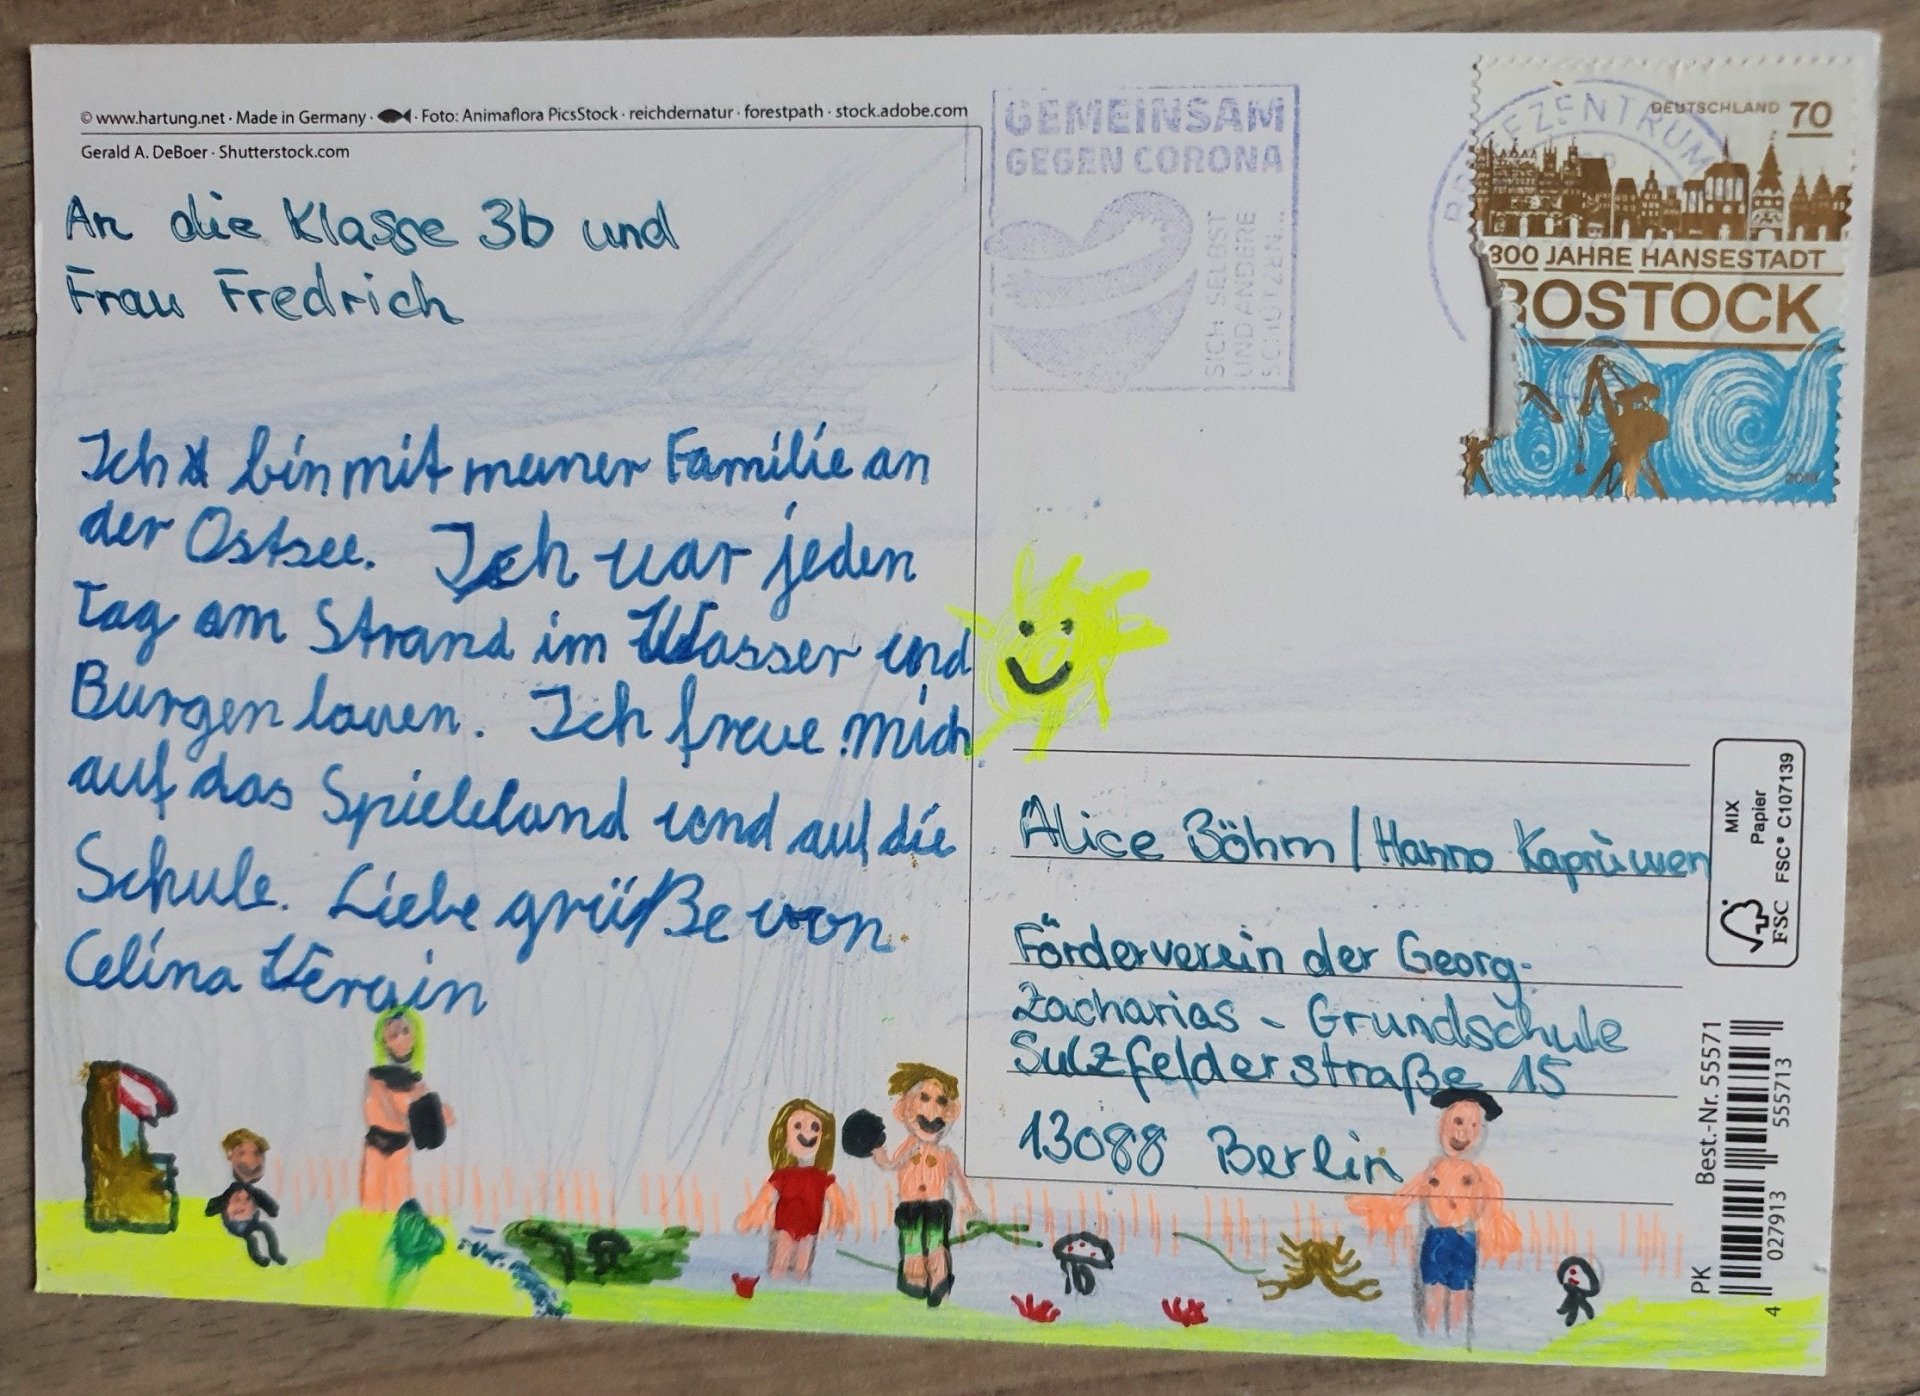 © www.hartung.net · Made in Germany · Foto: Animaflora PicsStock · reichdernatur · forestpath · stock.adobe.com
Gerald A. DeBoer · Shutterstock.com
An die Klasse 3b und
Frau Fredrich
Ich bin mit meiner Familie an
der Ostsee. Ich war jeden
Tag am Strand im Wasser und
Burgen bauen. Ich freue mich
auf das Spieleland und auf die
Schule. Liebe grüße von
Celina
GEMEINSAM
GEGEN CORONA
SICH SELBST
UND ANDERE
SCHÜTZEN...
BRIEFZENTRUM
DEUTSCHLAND 70
800 JAHRE HANSESTADT
ROSTOCK
Alice Böhm / Hanno
Förderverein der Georg-
Zacharias - Grundschule
Sulzfelderstraße 15
13088 Berlin
MIX
Papier
FSC® C107139
FSC
PK Best.-Nr. 55571
4 027913 555713